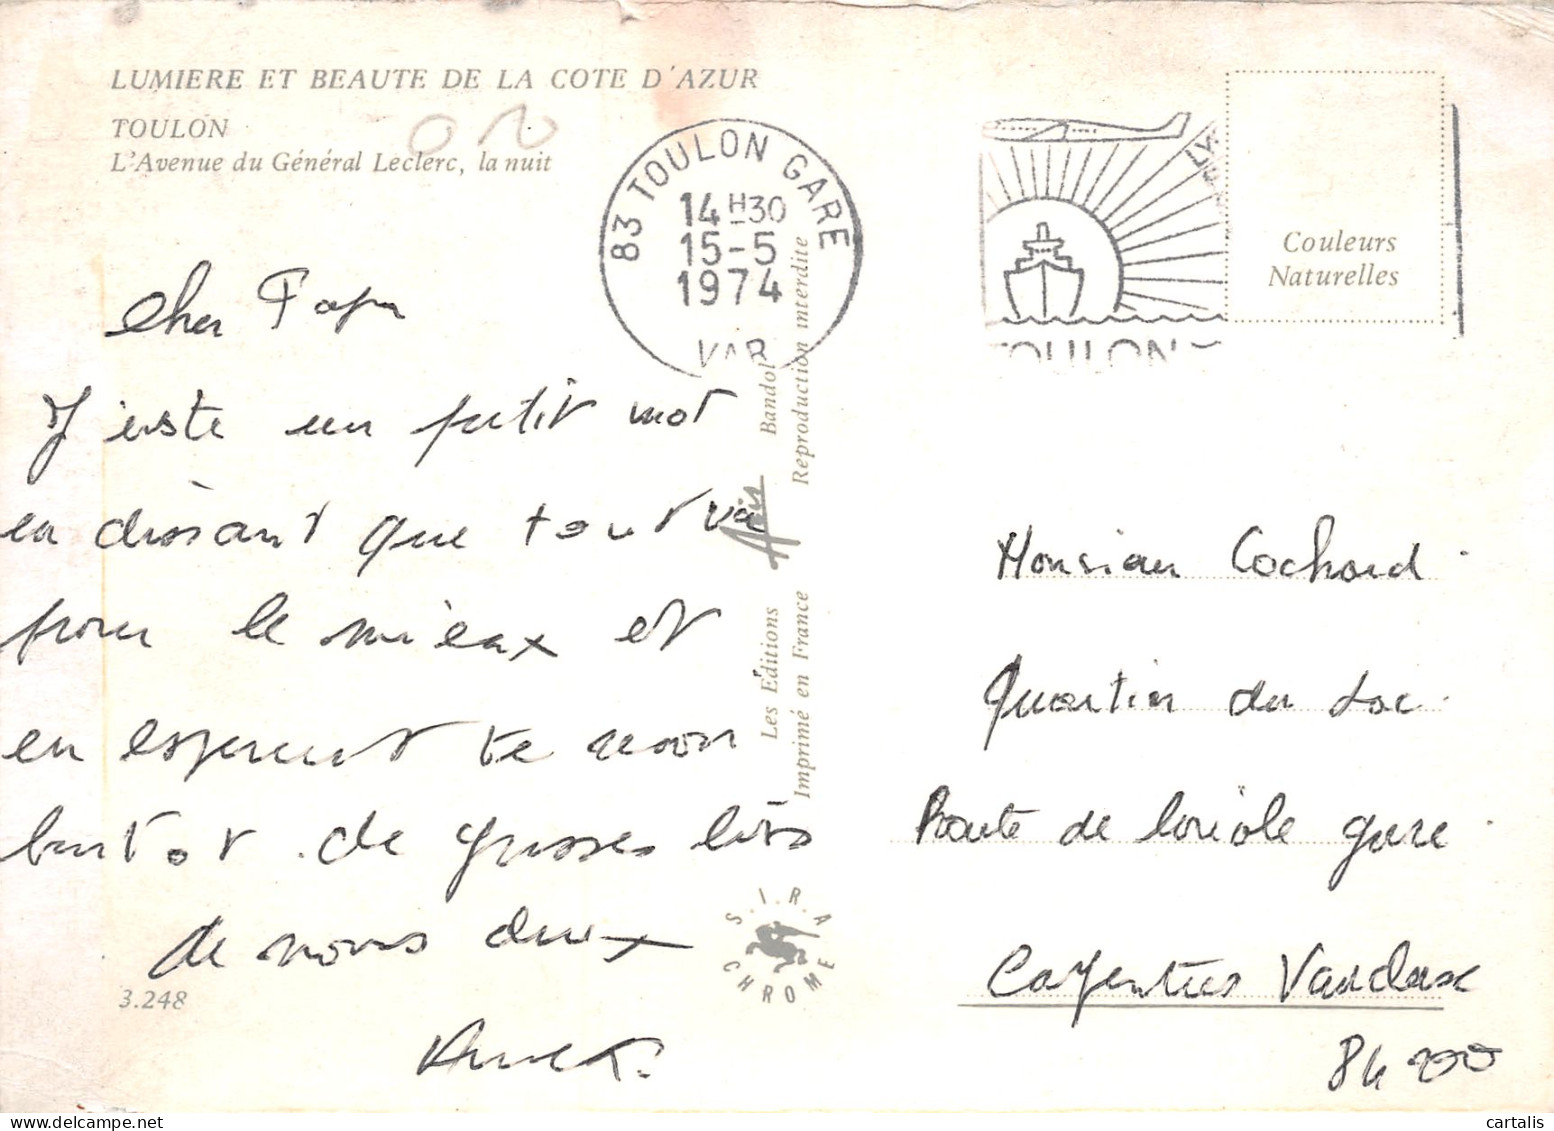 LUMIERE ET BEAUTE DE LA COTE D'AZUR
TOULON
L'Avenue du Général Leclerc, la nuit
83 TOULON GARE
14 H30
15-5
1974
VAR
TOULON
Couleurs
Naturelles
Cher Papa
J'uste un petit mot
en disant que tout va
pour le mieux et
en esperent te revoir
bientot de grosses bises
de nous deux
Les Éditions Aris Bandol
Imprimé en France Reproduction interdite
S.I.R.A
CHROME
3.248
Monsieur Cochard
Quartier du Lac
Route de loriole gare
Carpentras Vaucluse
84 200
cartalis